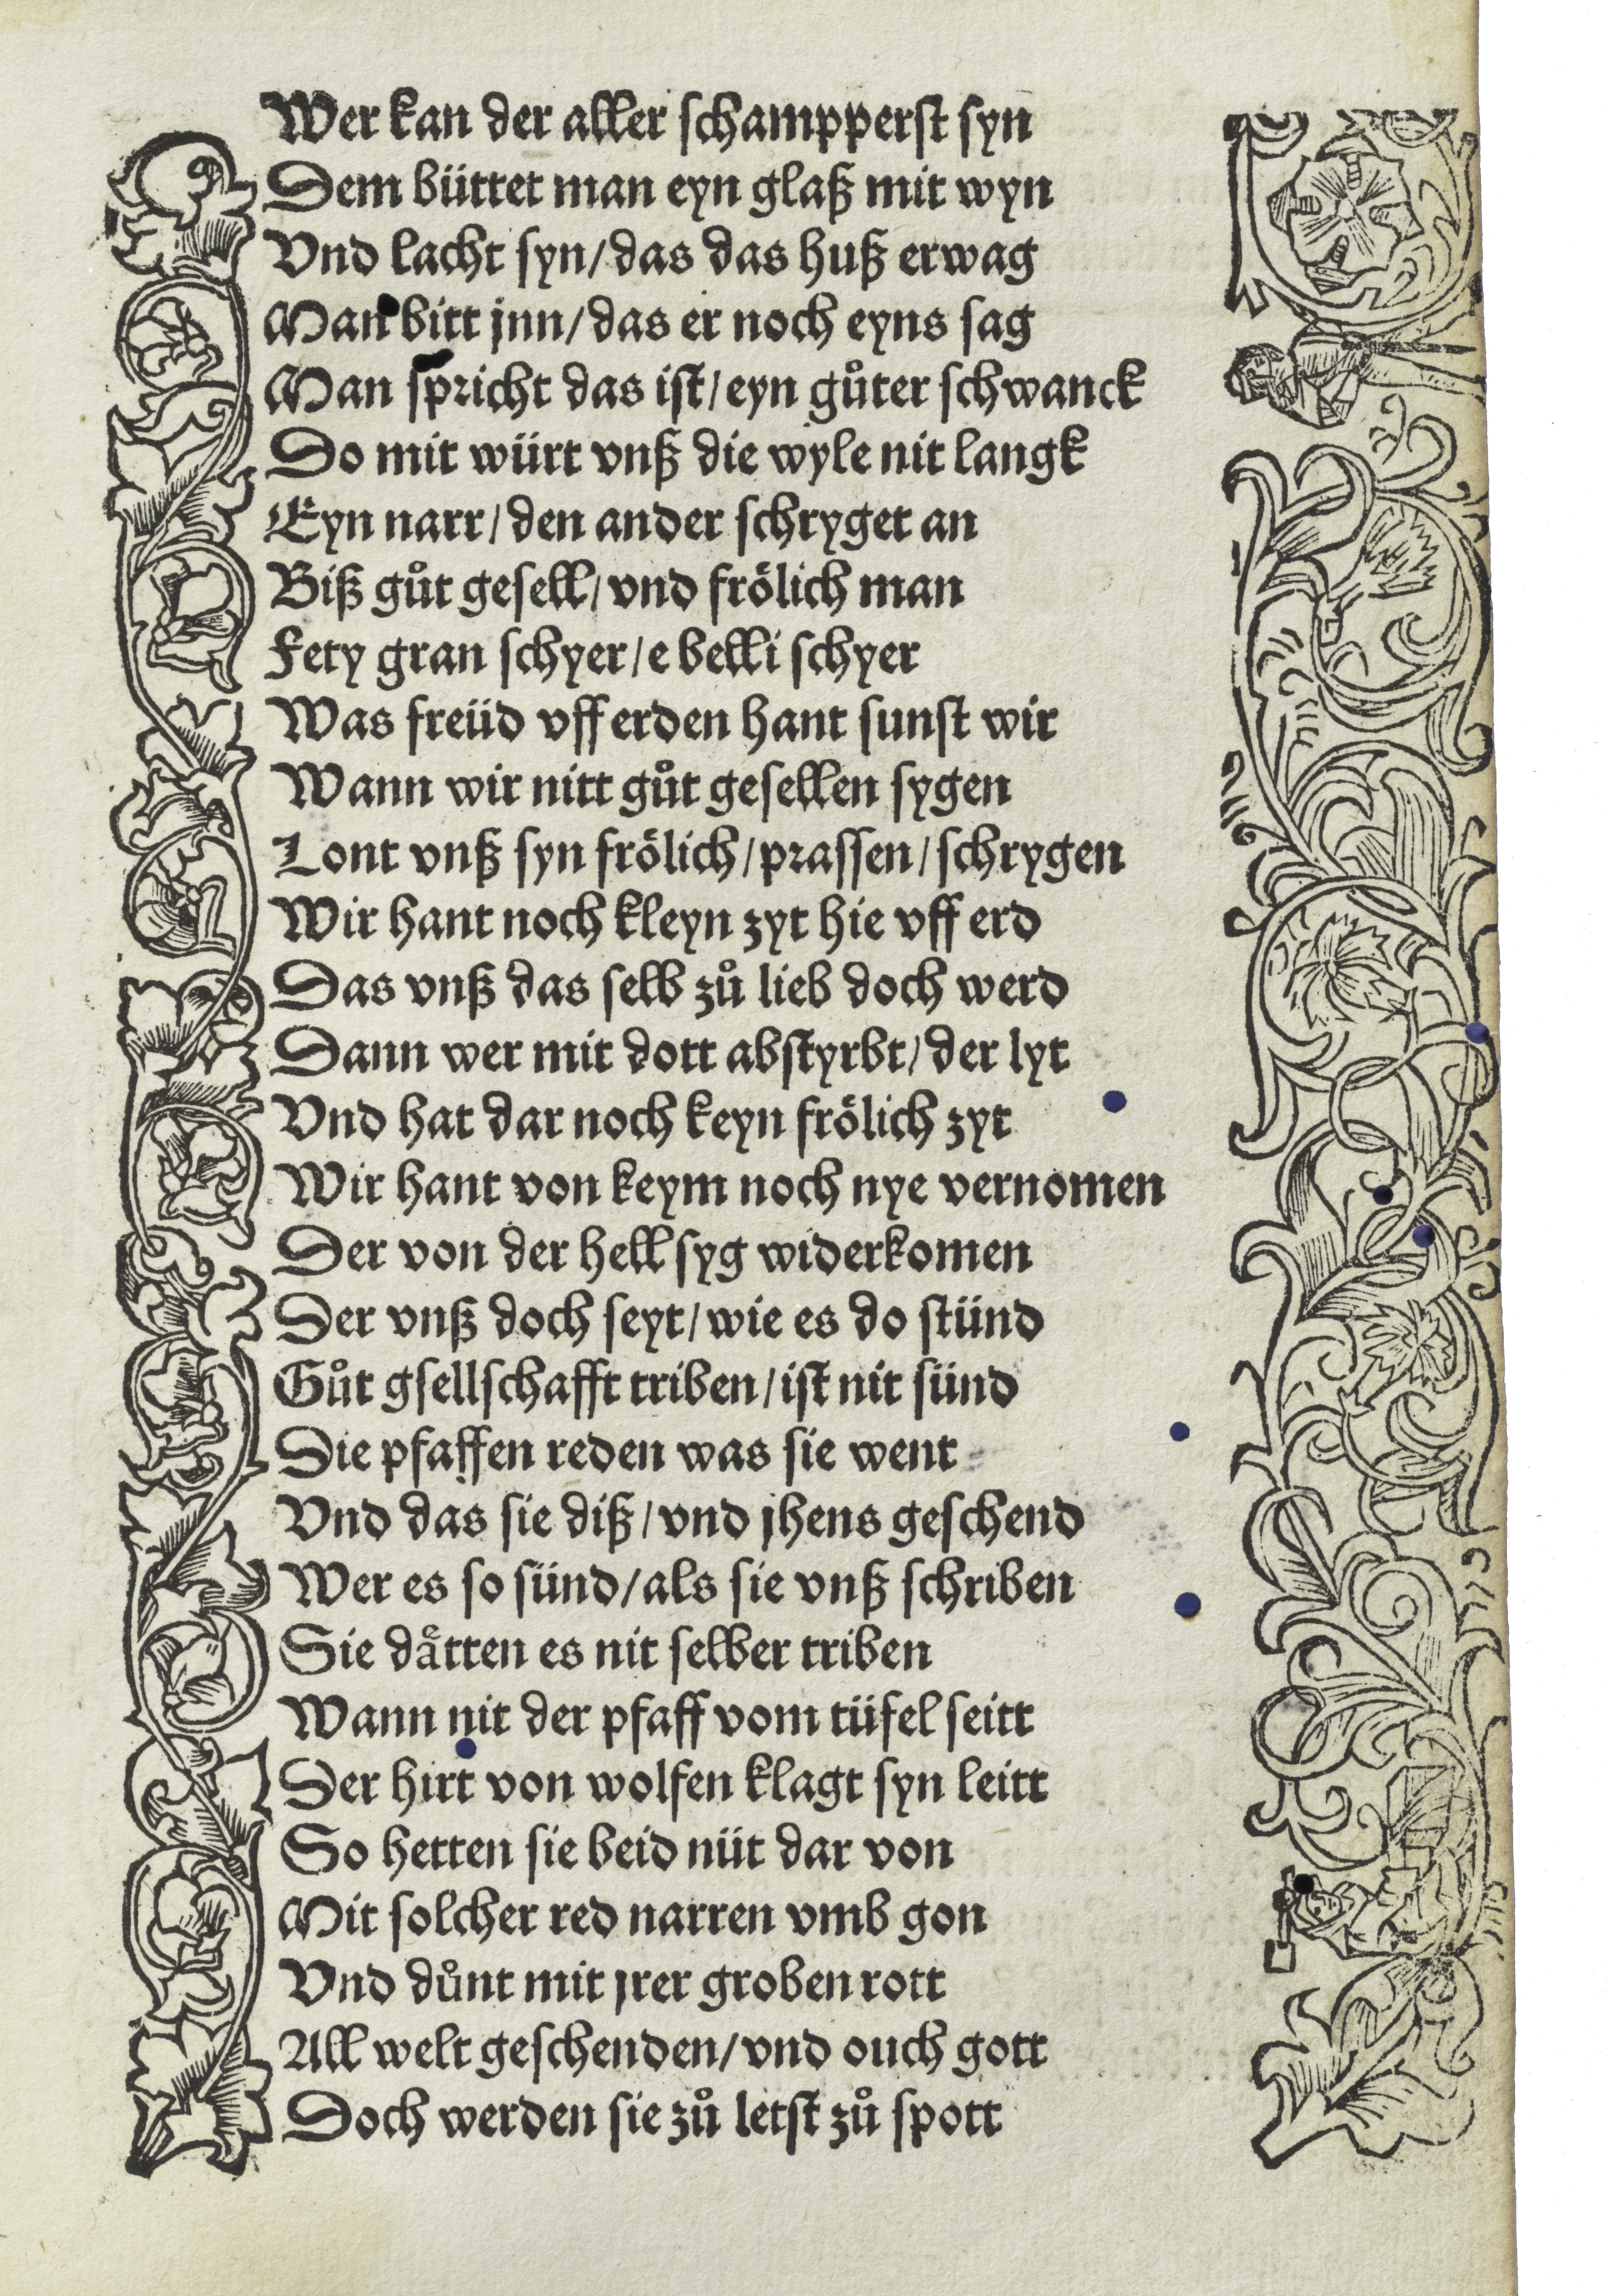 Wer kan der aller schampperst syn
Dem büttet man eyn glaß mit wyn
Vnd lacht syn/das das huß erwag
Man bitt jnn/das er noch eyns sag
Man spricht das ist/eyn gůter schwanck
Do mit würt vnß die wyle nit langk
Eyn narr/den ander schryget an
Biß gůt gesell/vnd frölich man
Fety gran schyer/e belli schyer
Was freüd vff erden hant sunst wir
Wann wir nitt gůt gesellen sygen
Lont vnß syn frölich/prassen/schrygen
Wir hant noch kleyn zyt hie vff erd
Das vnß das selb zů lieb doch werd
Dann wer mit dott abstyrbt/der lyt
Vnd hat dar noch keyn frölich zyt
Wir hant von keym noch nye vernomen
Der von der hell syg widerkomen
Der vnß doch seyt/wie es do stünd
Gůt gsellschafft triben/ist nit sünd
Die pfaffen reden was sie went
Vnd das sie diß/vnd jhens geschend
Wer es so sünd/als sie vnß schriben
Sie dåtten es nit selber triben
Wann nit der pfaff vom tüfel seitt
Der hirt von wolfen klagt syn leitt
So hetten sie beid nüt dar von
Mit solcher red narren vmb gon
Vnd důnt mit jrer groben rott
All welt geschenden/vnd ouch gott
Doch werden sie zů letst zů spott